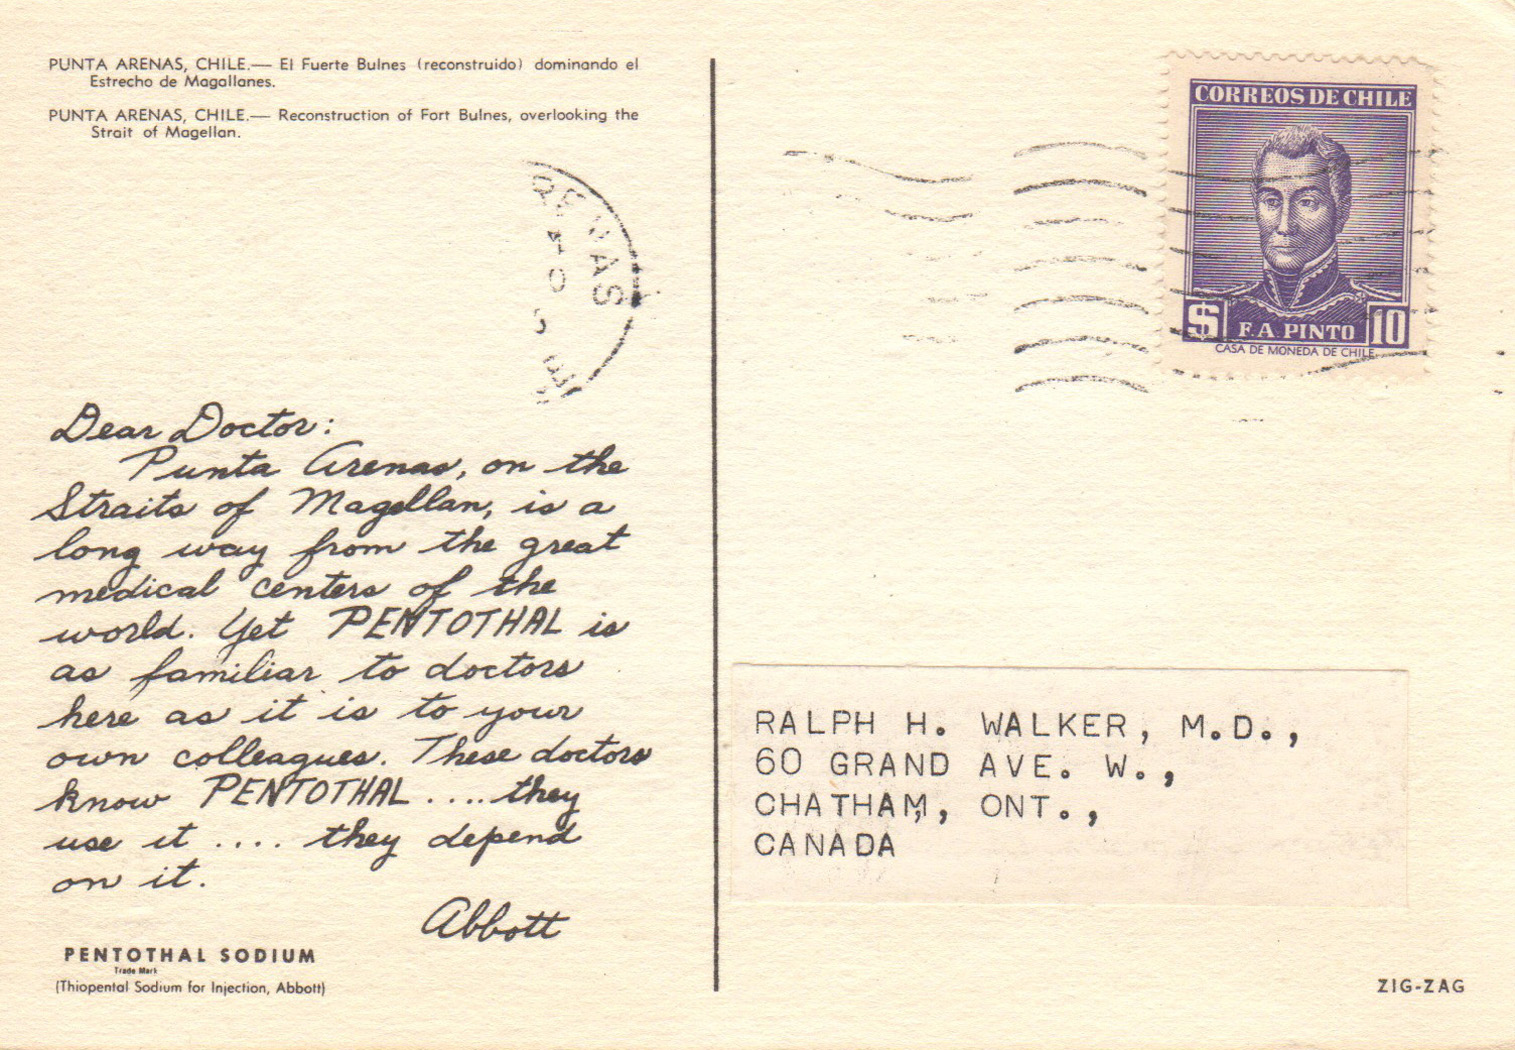 PUNTA ARENAS, CHILE.— El Fuerte Bulnes (reconstruido) dominando el
Estrecho de Magallanes.
PUNTA ARENAS, CHILE.— Reconstruction of Fort Bulnes, overlooking the
Strait of Magellan.
Dear Doctor:
Punta Arenas, on the
Straits of Magellan, is a
long way from the great
medical centers of the
world. Yet PENTOTHAL is
as familiar to doctors
here as it is to your
own colleagues. These doctors
know PENTOTHAL .... they
use it .... they depend
on it.
Abbott
PENTOTHAL SODIUM
Trade Mark
(Thiopental Sodium for Injection, Abbott)
CORREOS DE CHILE
$ F. A. PINTO 10
CASA DE MONEDA DE CHILE
RALPH H. WALKER, M.D.,
60 GRAND AVE. W.,
CHATHAM, ONT.,
CANADA
ZIG-ZAG